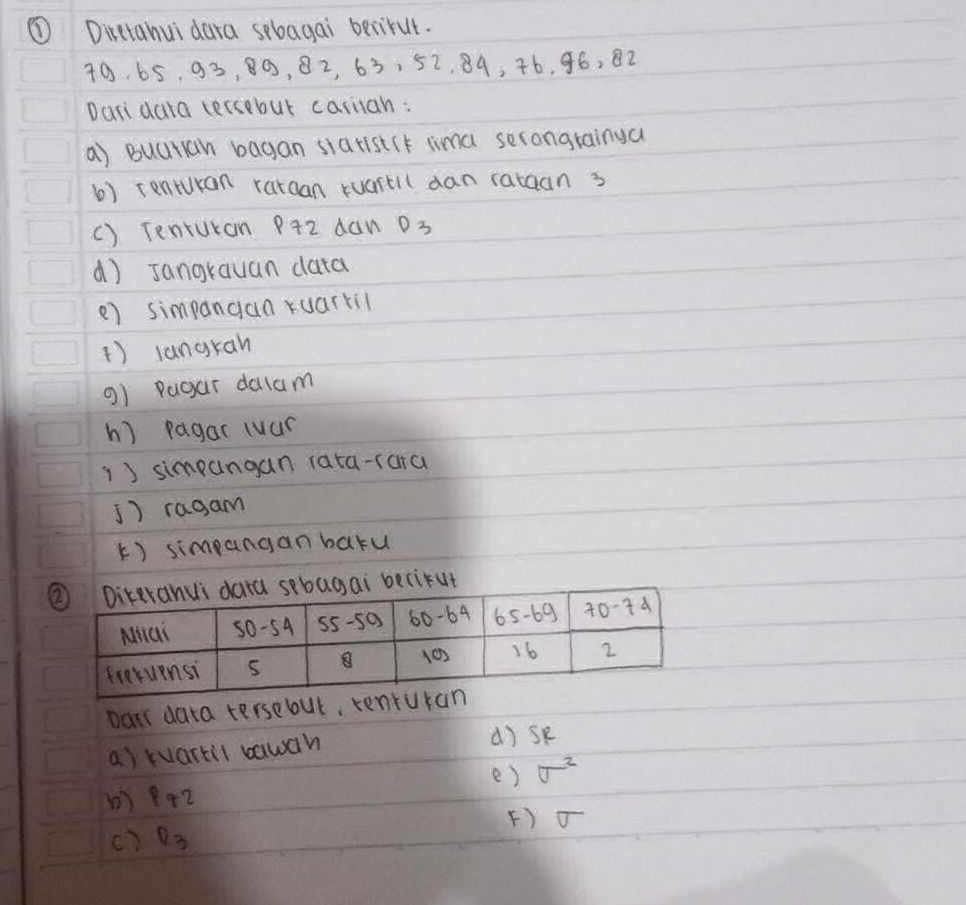 ① Diketahui data sebagai berikut.
79, 65, 93, 89, 82, 63, 52, 84, 76, 96, 82
Dari data tersebut carilah :
a) Buatlah bagan statistik lima serangkainya
b) Tentukan rataan kuartil dan rataan 3
c) Tentukan P72 dan D3
d) Jangkauan data
e) Simpangan kuartil
f) langkah
g) Pagar dalam
h) Pagar luar
i) simpangan rata-rata
j) ragam
k) simpangan baku
② Diketahui data sebagai berikut
Nilai 50-54 55-59 60-64 65-69 70-74
Frekuensi 5 8 19 16 2
Dari data tersebut, tentukan
a) kuartil bawah d) SR
b) P72 e) σ²
c) D3 f) σ